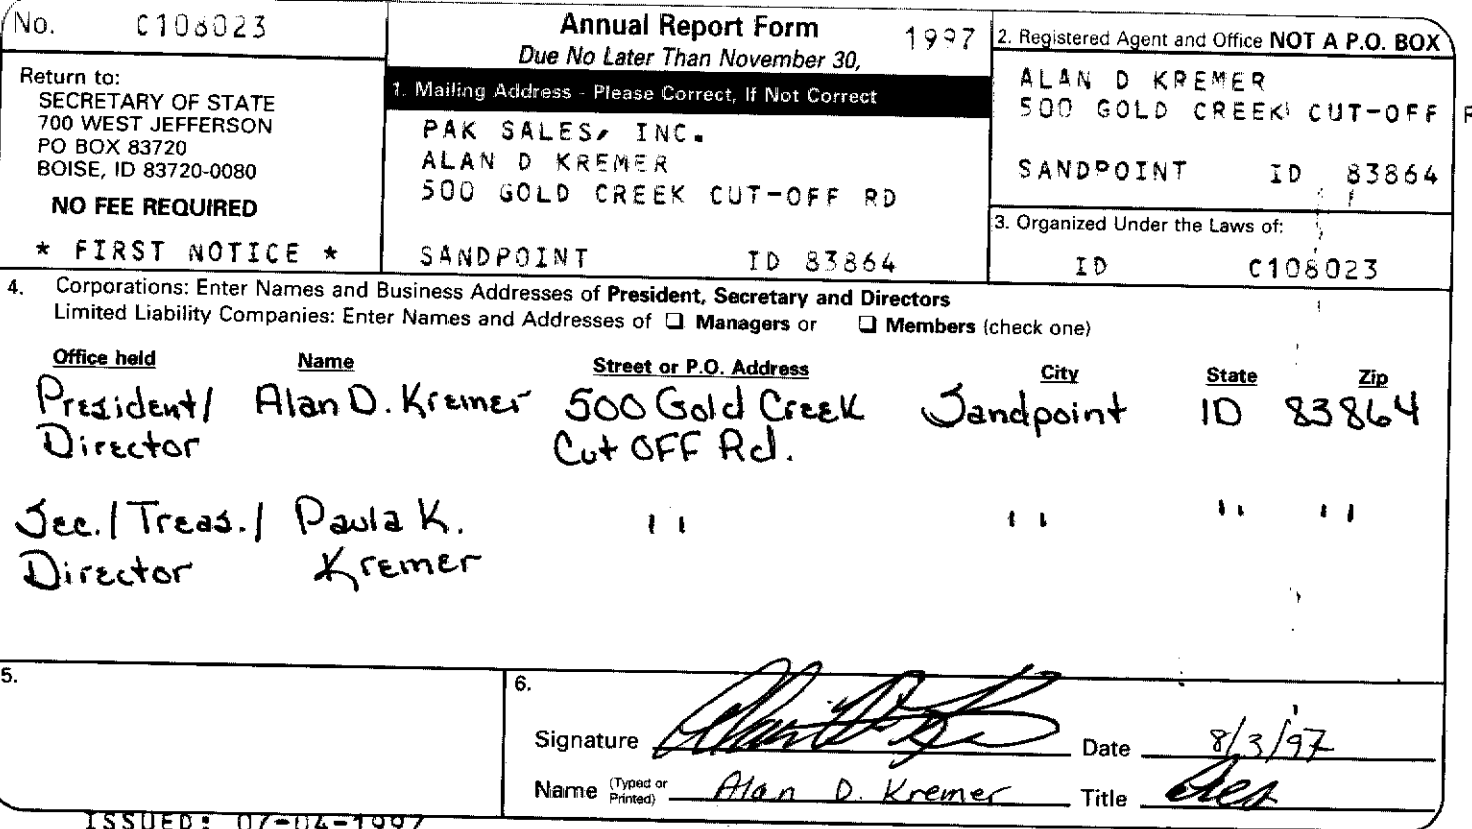 No. C108023
Annual Report Form 1997
Due No Later Than November 30,
Return to:
SECRETARY OF STATE
700 WEST JEFFERSON
PO BOX 83720
BOISE, ID 83720-0080
NO FEE REQUIRED
* FIRST NOTICE *
1. Mailing Address - Please Correct, If Not Correct
PAK SALES, INC.
ALAN D KREMER
500 GOLD CREEK CUT-OFF RD
SANDPOINT ID 83864
2. Registered Agent and Office NOT A P.O. BOX
ALAN D KREMER
500 GOLD CREEK CUT-OFF
SANDPOINT ID 83864
3. Organized Under the Laws of:
ID C108023
4. Corporations: Enter Names and Business Addresses of President, Secretary and Directors
Limited Liability Companies: Enter Names and Addresses of ❑ Managers or ❑ Members (check one)
Office held Name Street or P.O. Address City State Zip
President/ Alan D. Kremer 500 Gold Creek Sandpoint ID 83864
Director Cut OFF Rd.
Sec./Treas./ Paula K. " " " "
Director Kremer
5.
6.
Signature Date 8/3/97
Name (Typed or Printed) Alan D. Kremer Title Pres
ISSUED: 07-04-1997